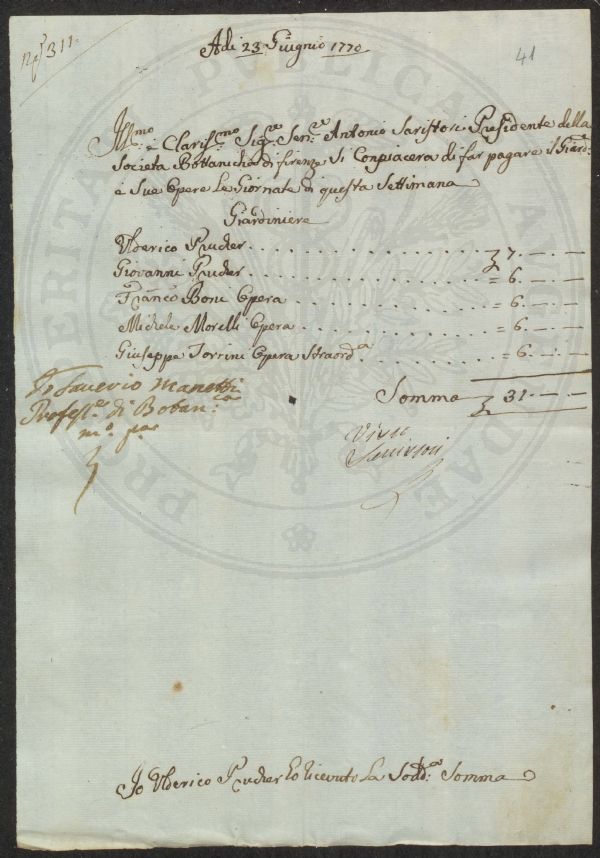 N.° 311.
41
Adi 23 Giugnio 1770
Ill.mo e Claris.mo Sig.re Sen.re Antonio Seristori Presidente della
Societa Bottanicha di firenze Si Conpiacera di far pagare il Giard:
e Sue Opere Le Giornate di questa Settimana
Giardiniere
Ulderico Prucker 7. — —
Giovanni Prucker = 6. — —
Franco Boni Opera = 6. — —
Michele Morelli Opera = 6. — —
Giuseppe Torrini Opera Straord.a = 6. — —
Somma 31. — —
Io Saverio Manetti
Profess.re di Botan.ca
m.o p.a
Visto
Seristori
Io Ulderico Prucker ho ricevuto La Sodd.a Somma
PRO PUBLICA